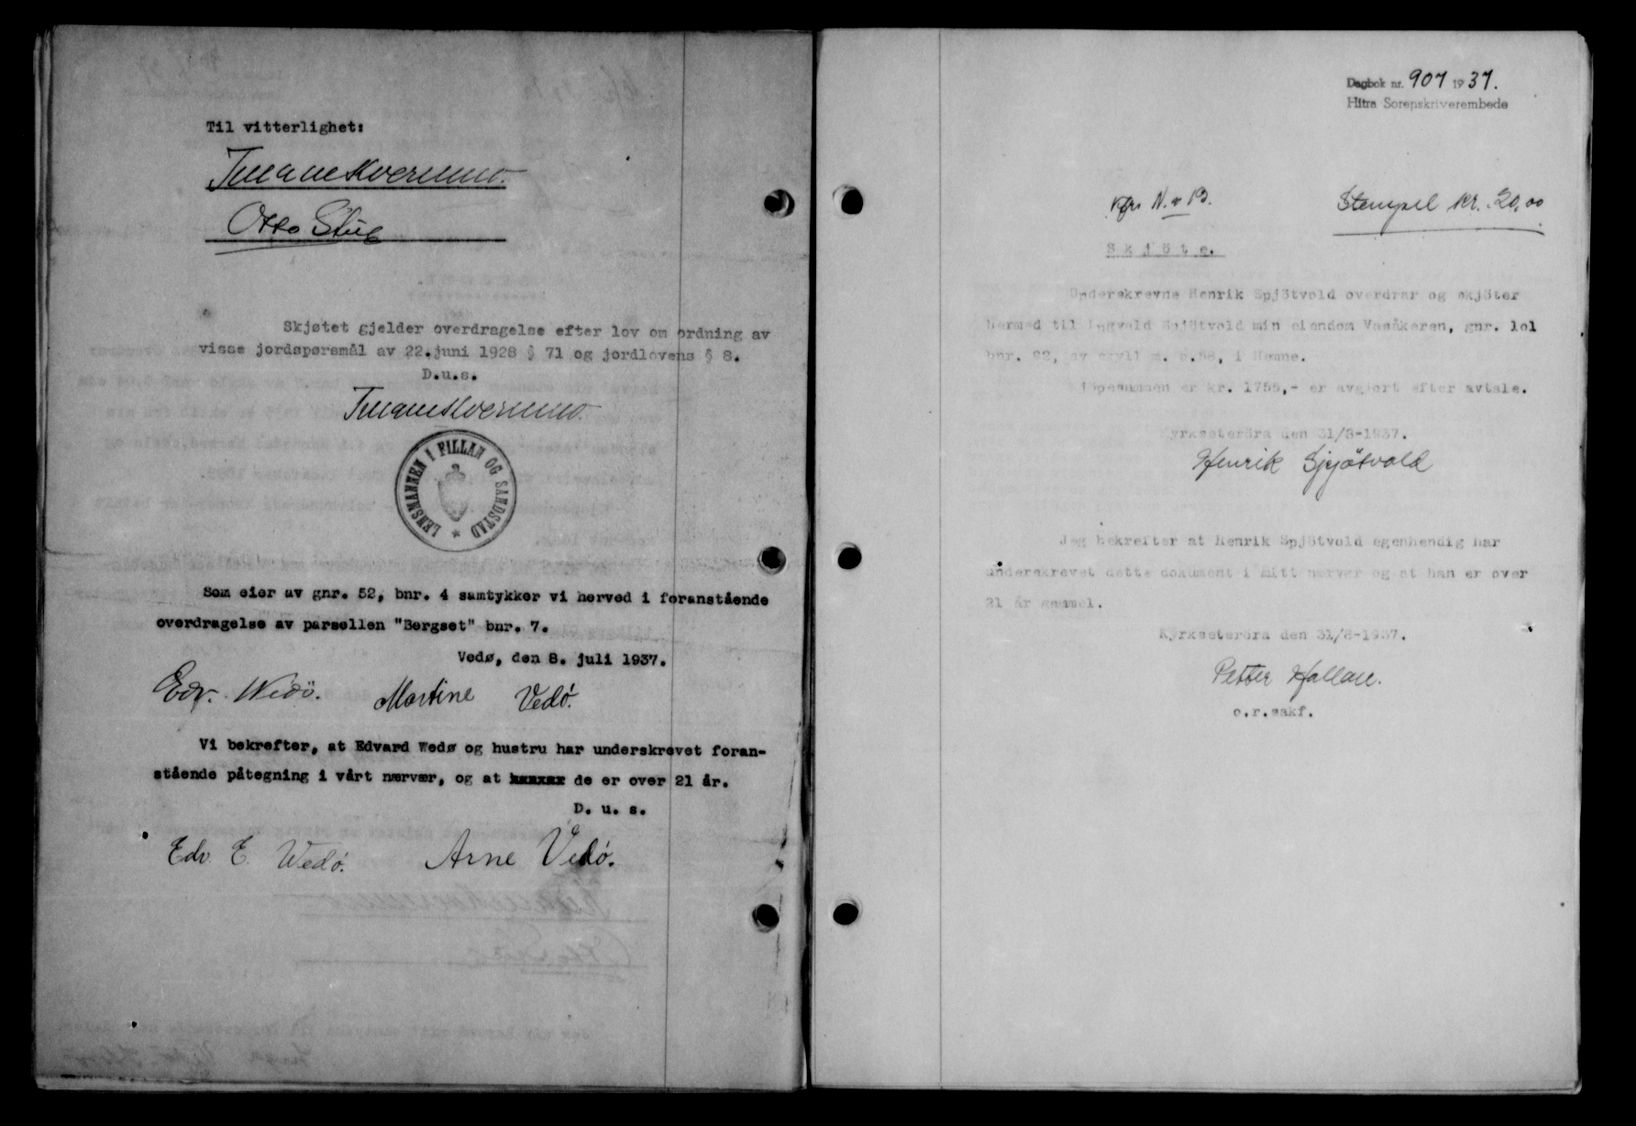 Til vitterlighet:
Otto Stub
Skjøtet gjelder overdragelse efter lov om ordning av
visse jordspørsmål av 22.juni 1928 § 71 og jordlovens § 8.
D.u.s.
LENSMANNEN I FILLAN OG SANDSTAD
Som eier av gnr. 52, bnr. 4 samtykker vi herved i foranstående
overdragelse av parsellen "Bergset" bnr. 7.
Vedø, den 8. juli 1937.
Edv. Wedö. Martine Vedø.
Vi bekrefter, at Edvard Wedø og hustru har underskrevet foran-
stående påtegning i vårt nærvær, og at de er over 21 år.
D. u. s.
Edv. E. Wedø. Arne Vedø.
Dagbok nr. 907 1937.
Hitra Sorenskriverembede
N. & B. Stempel kr. 20,00
Skjöte.
Underskrevne Henrik Spjötvold overdrar og skjöter
hermed til Ingvald Spjötvold min eiendom Vasåkeren, gnr. 101
bnr. 22, av skyll m. 0.58, i Hemne.
Kjöpesummen er kr. 1755,- er avgjort efter avtale.
Kyrksæteröra den 31/8-1937.
Henrik Spjøtvold
Jeg bekrefter at Henrik Spjötvold egenhendig har
underskrevet dette dokument i mitt nærvær og at han er over
21 år gammel.
Kyrksæteröra den 31/8-1937.
Petter Hallan.
o.r.sakf.